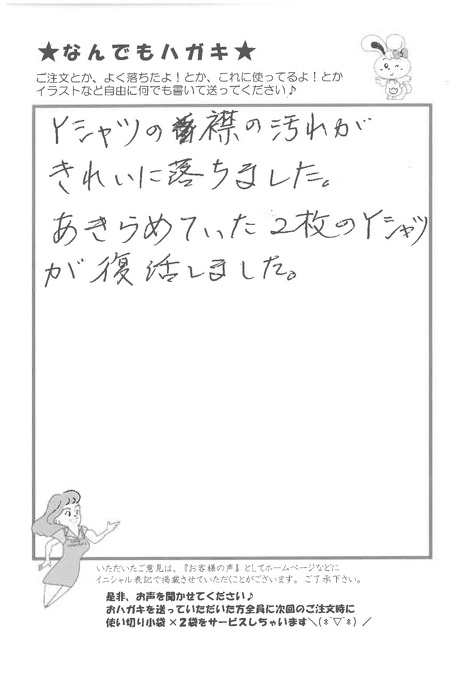 ★なんでもハガキ★
ご注文とか、よく落ちたよ！とか、これに使ってるよ！とか
イラストなど自由に何でも書いて送ってください♪
Yシャツの襟の汚れが
きれいに落ちました。
あきらめていた2枚のYシャツ
が復活しました。
いただいたご意見は、『お客様の声』としてホームページなどに
イニシャル表記で掲載させていただくことがございます。ご了承下さい。
是非、お声を聞かせてください♪
おハガキを送っていただいた方全員に次回のご注文時に
使い切り小袋×2袋をサービスしちゃいます＼(*ˇ▽ˇ*)／